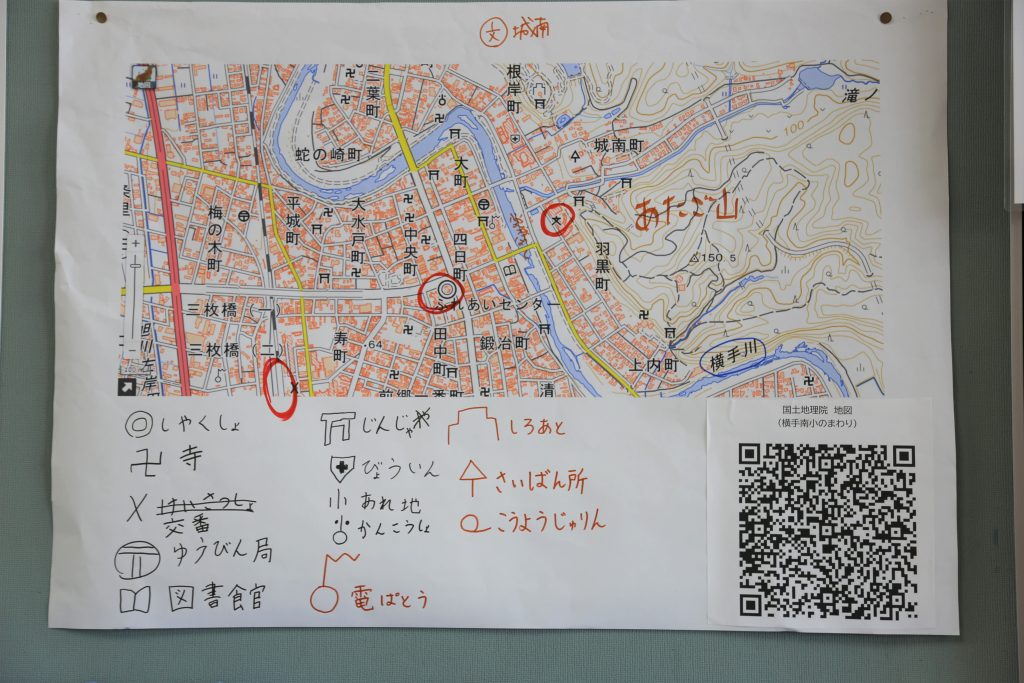 文 城南
根岸町
滝ノ
城南町
100
蛇の崎町
大町
平城町
大水戸町
梅の木町
中央町
四日町
あたご山
150.5
羽黒町
ふれあいセンター
三枚橋(一)
三枚橋(二)
寿町
64
田中町
鍛冶町
上内町
横手川
清
しやくしょ
寺
けいさつしょ
交番
ゆうびん局
図書館
じんじゃ
びょういん
あれ地
かんこうしょ
電ぱとう
しろあと
さいばん所
こうようじゅりん
国土地理院 地図
(横手南小のまわり)